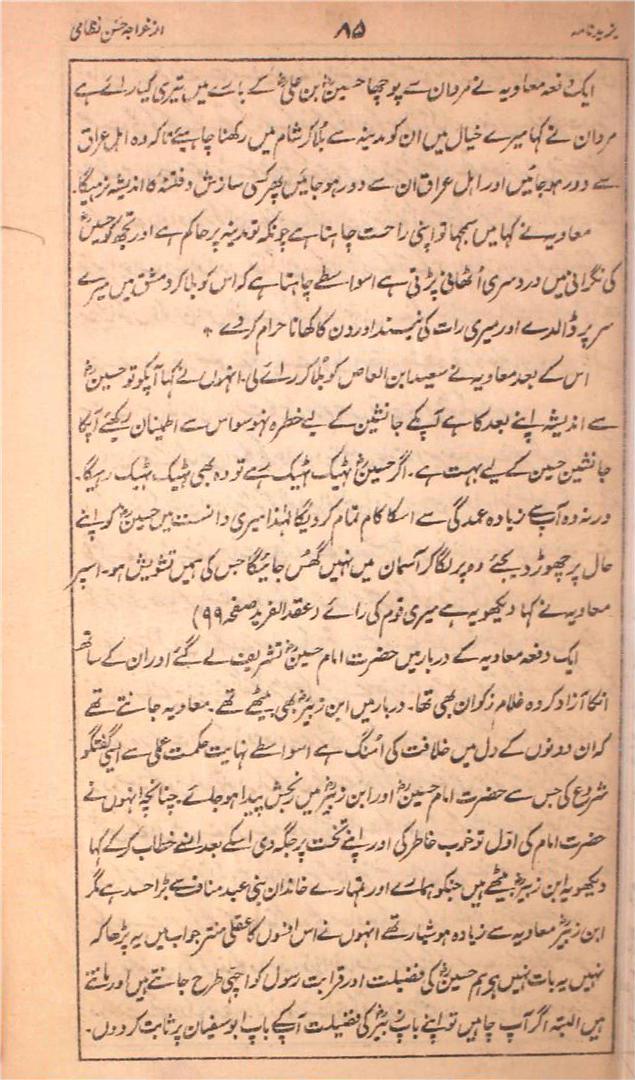 یزیدنامہ ۸۵ از خواجہ حسن نظامی
ایک دفعہ معاویہ نے مردان سے پوچھا حسینؓ بن علیؓ کے بارے میں تیری کیا رائے ہے
مردان نے کہا میرے خیال میں ان کو مدینہ سے بلا کر شام میں رکھنا چاہیئے تاکہ وہ اہل عراق
سے دور ہوجائیں اور اہل عراق ان سے دور ہوجائیں پھر کسی سازش و فتنہ کا اندیشہ نرہیگا۔
معاویہ نے کہا میں سمجھا تو اپنی راحت چاہتا ہے چونکہ تو مدینہ پر حاکم ہے اور تجھ کو حسینؓ
کی نگرانی میں دردسری اُٹھانی پڑتی ہے اسواسطے چاہتا ہے کہ اس کو بلا کر دمشق میں میرے
سر پر ڈالدے اور میری رات کی نیند اور دن کا کھانا حرام کر دے ٭
اس کے بعد معاویہ نے سعید ابن العاص کو بلا کر رائے لی۔ انہوں نے کہا آپکو تو حسینؓ
سے اندیشہ اپنے بعد کا ہے آپکے جانشین کے لیے خطرہ نہو سو اس سے اطمینان رکھئے آپکا
جانشین حسین کے لیے بہت ہے۔ اگر حسینؓ ٹہیک ٹہیک رہے تو وہ بھی ٹہیک ٹہیک رہیگا۔
ورنہ وہ آپ سے زیادہ عمدگی سے اسکا کام تمام کر دیگا لہٰذا میری دانست میں حسینؓ کو اپنے
حال پر چھوڑ دیجئے وہ پر لگا کر آسمان میں نہیں گھُس جائیگا جس کی ہمیں تشویش ہو۔ اسپر
معاویہ نے کہا دیکھو یہ ہے میری قوم کی رائے (عقد الفرید صفحہ ۹۹)
ایک دفعہ معاویہ کے دربار میں حضرت امام حسینؓ تشریف لے گئے اور ان کے ساتھ
انکا آزاد کردہ غلام زکوان بھی تھا۔ دربار میں ابن زبیرؓ بھی بیٹھے تھے۔ معاویہ جانتے تھے
کہ ان دونوں کے دل میں خلافت کی اُمنگ ہے اسواسطے نہایت حکمت عملی سے ایسی گفتگو
شروع کی جس سے حضرت امام حسینؓ اور ابن زبیرؓ میں رنجش پیدا ہوجائے۔ چنانچہ انہوں نے
حضرت امام کی اوّل تو خوب خاطر کی اور اپنے تخت پر جگہ دی اسکے بعد انسے خطاب کر کے کہا
دیکھو یہ ابن زبیرؓ بیٹھے ہیں جنکو ہمارے اور تمہارے خاندان بنی عبد مناف سے بڑا حسد ہے مگر
ابن زبیرؓ معاویہ سے زیادہ ہوشیار تھے انہوں نے اس افسوں کا عقلی منتر جواب میں یہ پڑھا کہ
نہیں یہ بات نہیں ہے ہم حسینؓ کی فضیلت اور قرابت رسول کو اچھی طرح جانتے ہیں اور مانتے
ہیں البتہ اگر آپ چاہیں تو اپنے باپ زبیرؓ کی فضیلت آپکے باپ ابوسفیان پر ثابت کر دوں۔